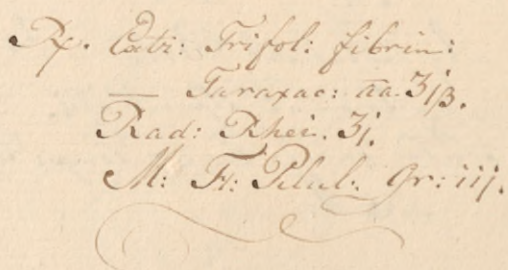 Rx. Extr: Trifol: fibrin:
— Taraxac: aa. ʒjβ.
Rad: Rhei. ʒj.
M: Ft: Pilul: gr: iij.